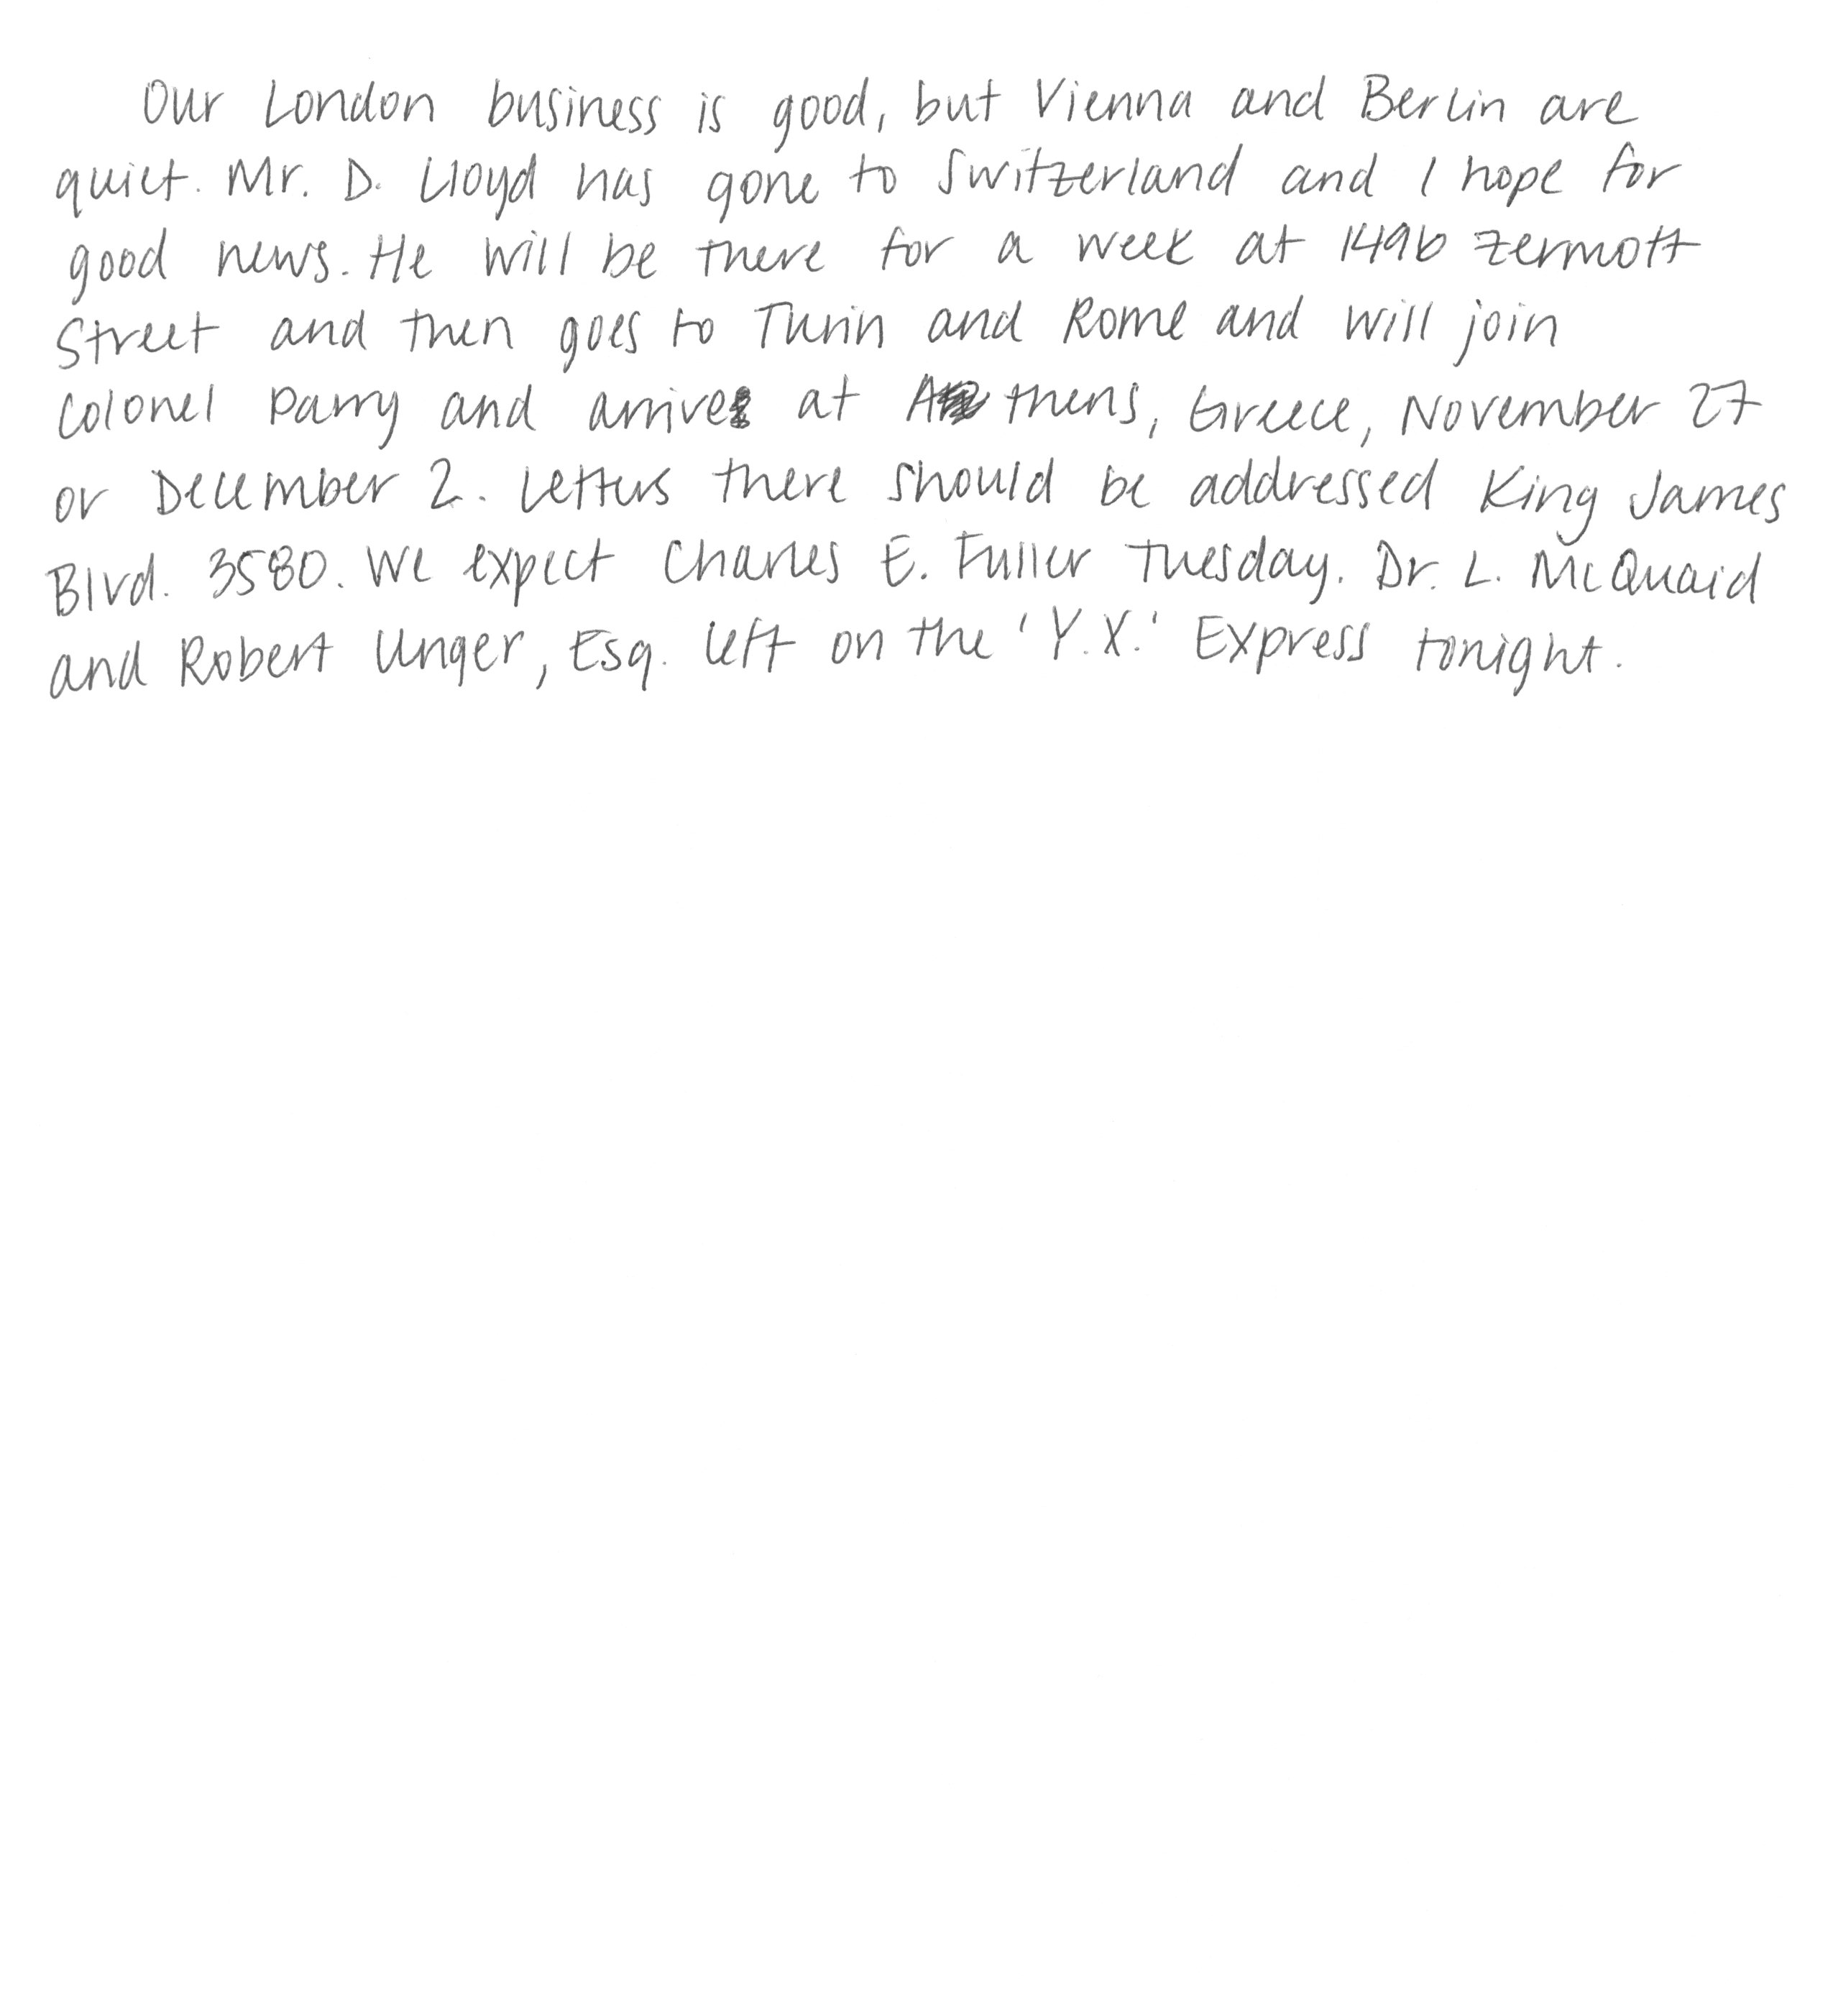 Our London business is good, but Vienna and Berlin are
quiet. Mr. D. Lloyd has gone to Switzerland and I hope for
good news. He will be there for a week at 1496 Zermott
Street and then goes to Turin and Rome and will join
Colonel Parry and arrive at Athens, Greece, November 27
or December 2. Letters there should be addressed King James
Blvd. 3580. We expect Charles E. Fuller Tuesday. Dr. L. McQuaid
and Robert Unger, Esq. left on the 'Y.X.' Express tonight.